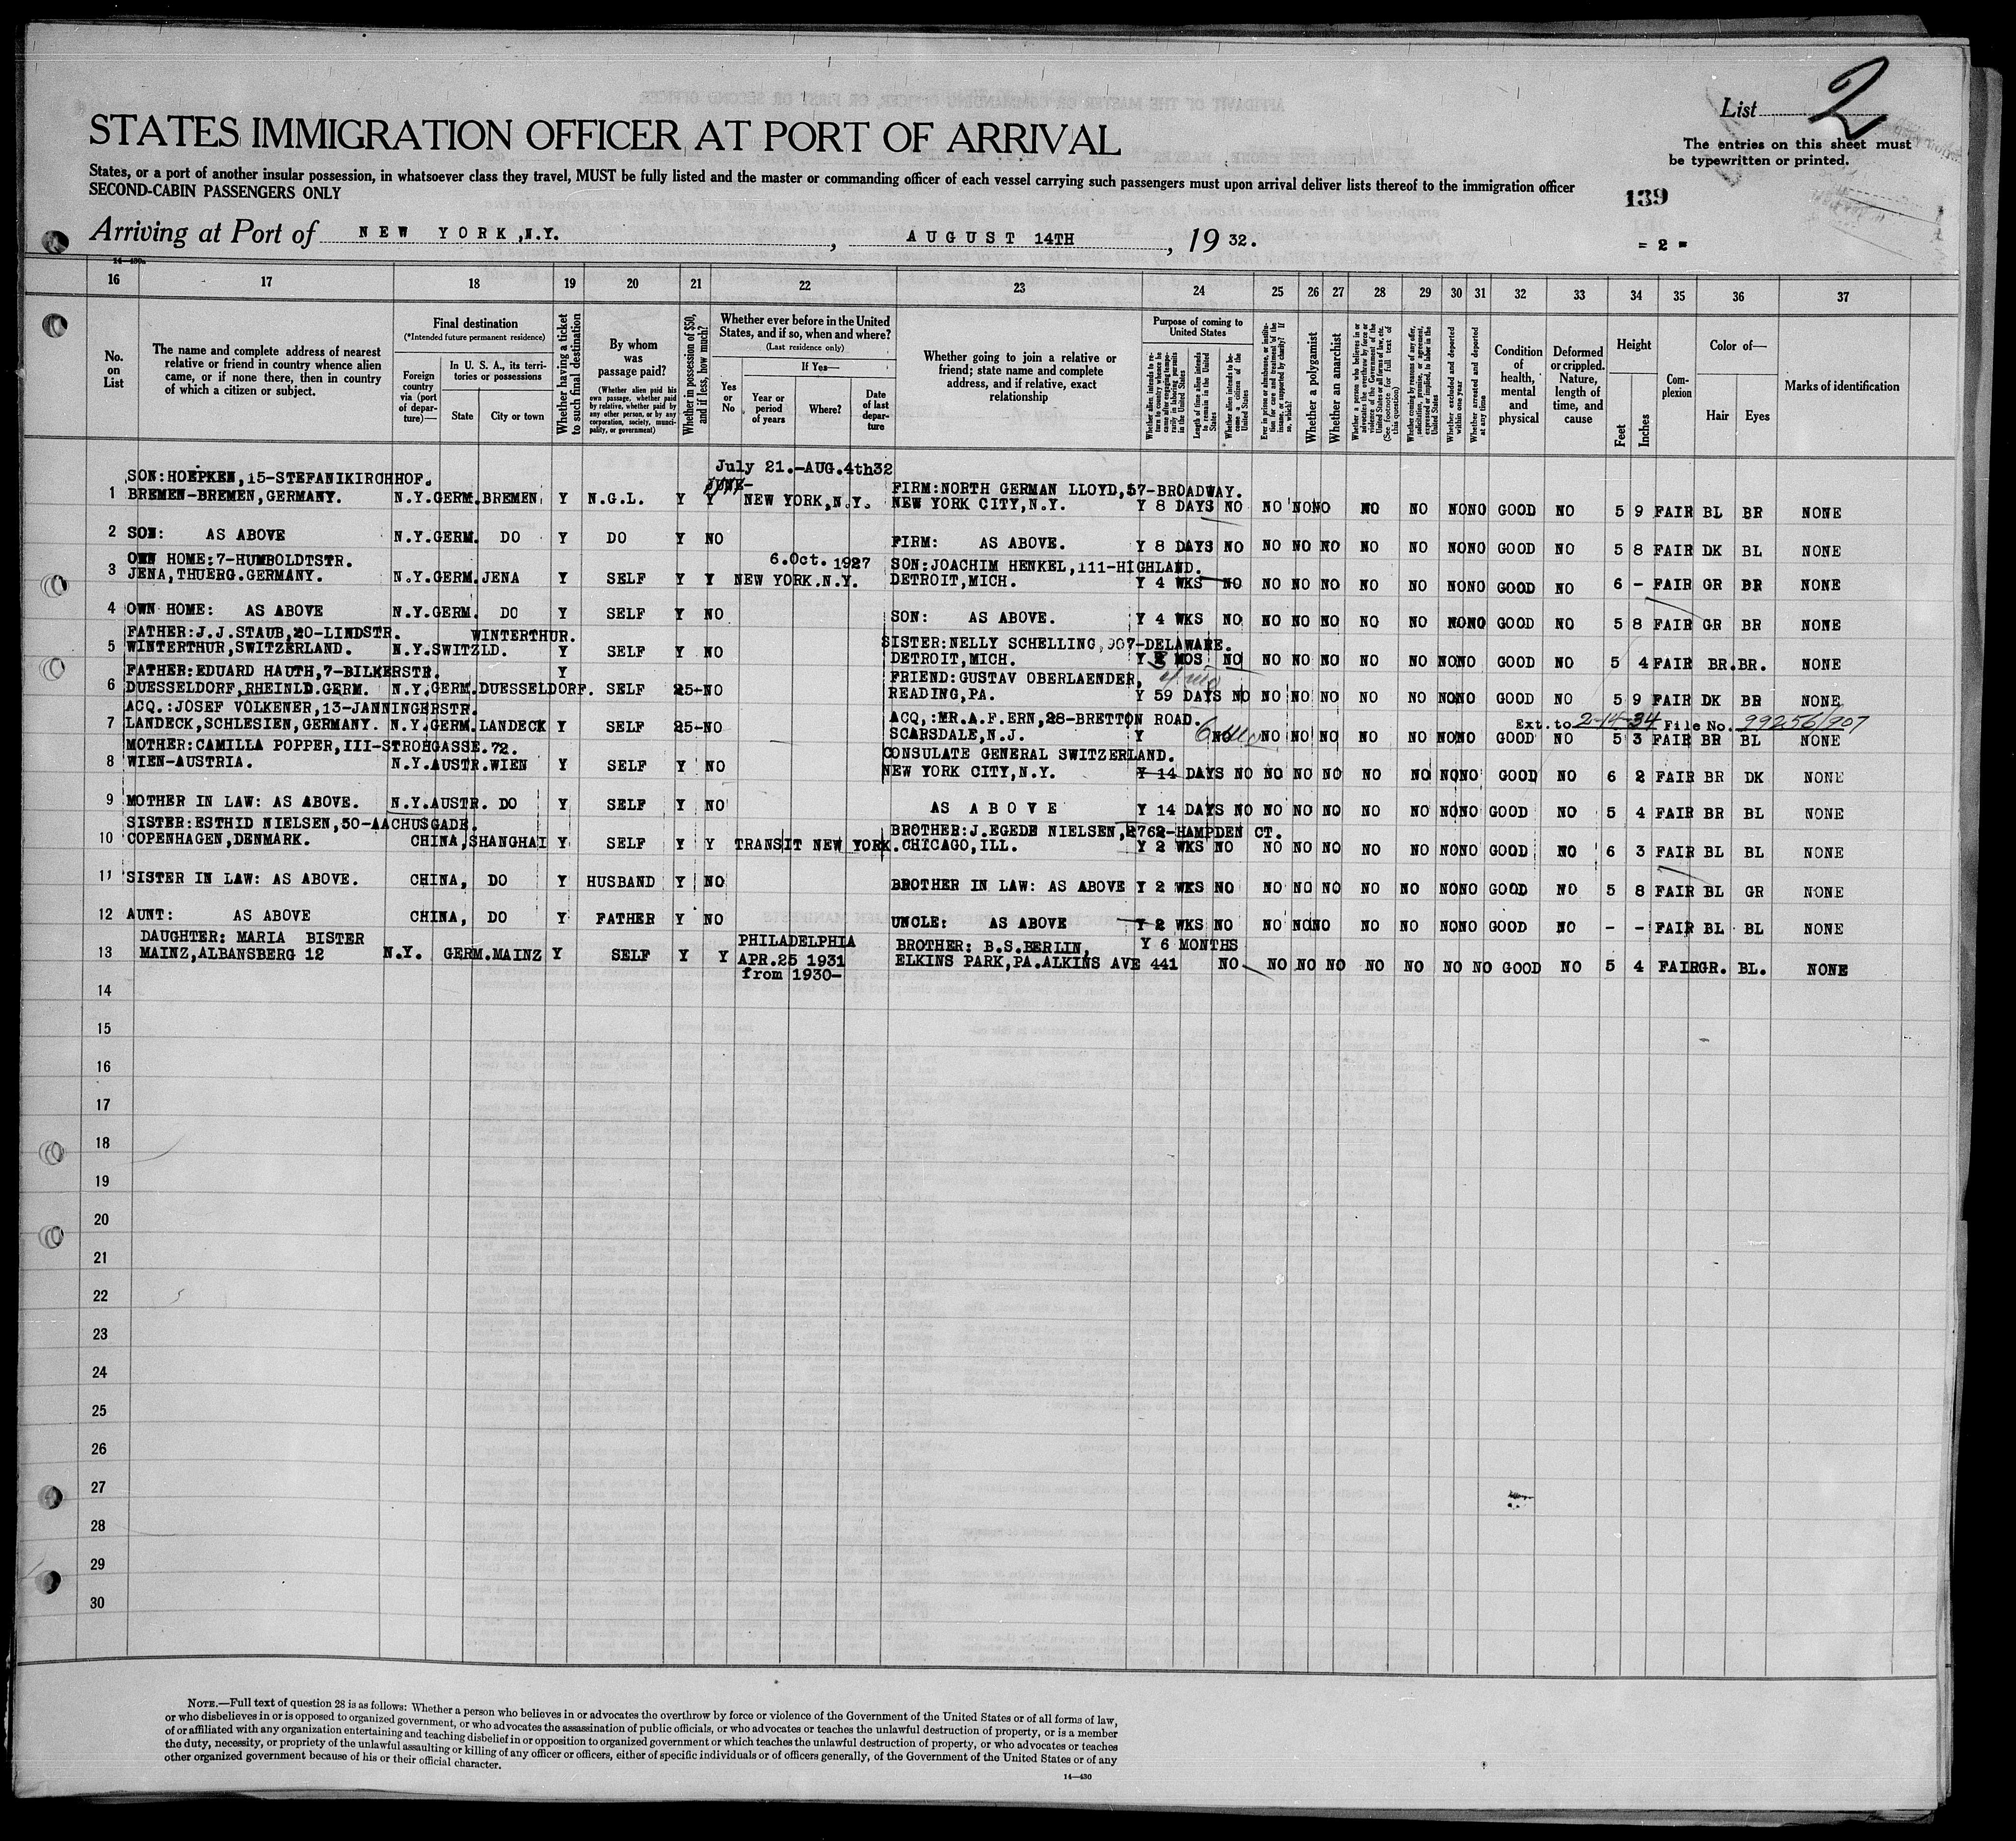 List 2
STATES IMMIGRATION OFFICER AT PORT OF ARRIVAL
The entries on this sheet must
be typewritten or printed.
States, or a port of another insular possession, in whatsoever class they travel, MUST be fully listed and the master or commanding officer of each vessel carrying such passengers must upon arrival deliver lists thereof to the immigration officer
SECOND-CABIN PASSENGERS ONLY
139
Arriving at Port of NEW YORK,N.Y. , AUGUST 14TH , 19 32.
= 2 =
16 17 18 19 20 21 22 23 24 25 26 27 28 29 30 31 32 33 34 35 36 37
No. on List
The name and complete address of nearest relative or friend in country whence alien came, or if none there, then in country of which a citizen or subject.
Final destination
(*Intended future permanent residence)
Foreign country via (port of departure)—
In U. S. A., its territories or possessions
State
City or town
Whether having a ticket to such final destination
By whom was passage paid?
(Whether alien paid his own passage, whether paid by relative, whether paid by any other person, or by any corporation, society, municipality, or government)
Whether in possession of $50, and if less, how much?
Whether ever before in the United States, and if so, when and where?
(Last residence only)
Yes or No
If Yes—
Year or period of years
Where?
Date of last departure
Whether going to join a relative or friend; state name and complete address, and if relative, exact relationship
Purpose of coming to United States
Whether alien intends to return to country whence he came after engaging temporarily in laboring pursuits in the United States
Length of time alien intends to remain in the United States
Whether alien intends to become a citizen of the United States
Ever in prison or almshouse, or institution for care and treatment of the insane, or supported by charity? If so, which?
Whether a polygamist
Whether an anarchist
Whether a person who believes in or advocates the overthrow by force or violence of the Government of the United States or all forms of law, etc. (See footnote for full text of this question)
Whether coming by reason of any offer, solicitation, promise, or agreement, expressed or implied, to labor in the United States
Whether excluded and deported within one year
Whether arrested and deported at any time
Condition of health, mental and physical
Deformed or crippled. Nature, length of time, and cause
Height
Feet
Inches
Complexion
Color of—
Hair
Eyes
Marks of identification
SON:HOEPKEN,15-STEFANIKIRCHHOF. July 21.-AUG.4th32
1 BREMEN-BREMEN,GERMANY. N.Y.GERM.BREMEN. Y N.G.L. Y Y NEW YORK,N.Y. FIRM:NORTH GERMAN LLOYD,57-BROADWAY.
NEW YORK CITY,N.Y. Y 8 DAYS NO NO NO NO NO NO NO NO GOOD NO 5 9 FAIR BL BR NONE
2 SON: AS ABOVE N.Y.GERM. DO Y DO Y NO FIRM: AS ABOVE. Y 8 DAYS NO NO NO NO NO NO NO NO GOOD NO 5 8 FAIR DK BL NONE
OWN HOME:7-HUMBOLDTSTR. 6.Oct. 1927 SON:JOACHIM HENKEL,111-HIGHLAND.
3 JENA,THUERG.GERMANY. N.Y.GERM.JENA Y SELF Y Y NEW YORK.N.Y. DETROIT,MICH. Y 4 WKS NO NO NO NO NO NO NO NO GOOD NO 6 - FAIR GR BR NONE
4 OWN HOME: AS ABOVE N.Y.GERM. DO Y SELF Y NO SON: AS ABOVE. Y 4 WKS NO NO NO NO NO NO NO NO GOOD NO 5 8 FAIR GR BR NONE
FATHER:J.J.STAUB,20-LINDSTR. WINTERTHUR. SISTER:NELLY SCHELLING,907-DELAWARE.
5 WINTERTHUR,SWITZERLAND. N.Y.SWITZLD. Y SELF Y NO DETROIT,MICH. Y MOS NO NO NO NO NO NO NO NO GOOD NO 5 4 FAIR BR.BR. NONE
FATHER:EDUARD HAUTH,7-BILKERSTR. Y FRIEND:GUSTAV OBERLAENDER, 4 mo
6 DUESSELDORF,RHEINLD.GERM. N.Y.GERM.DUESSELDORF. SELF 25-NO READING,PA. Y 59 DAYS NO NO NO NO NO NO NO NO GOOD NO 5 9 FAIR DK BR NONE
ACQ.:JOSEF VOLKENER,13-JANNINGERSTR. ACQ,:MR.A.F.ERN,28-BRETTON ROAD. Ext. to 2-14-34 File No. 99256/907
7 LANDECK,SCHLESIEN,GERMANY. N.Y.GERM.LANDECK Y SELF 25-NO SCARSDALE,N.J. Y 6 mo NO NO NO NO NO NO NO NO GOOD NO 5 3 FAIR BR BL NONE
MOTHER:CAMILLA POPPER,III-STROHGASSE.72. CONSULATE GENERAL SWITZERLAND.
8 WIEN-AUSTRIA. N.Y.AUSTR.WIEN Y SELF Y NO NEW YORK CITY,N.Y. Y 14 DAYS NO NO NO NO NO NO NO NO GOOD NO 6 2 FAIR BR DK NONE
9 MOTHER IN LAW: AS ABOVE. N.Y.AUSTR. DO Y SELF Y NO AS ABOVE Y 14 DAYS NO NO NO NO NO NO NO NO GOOD NO 5 4 FAIR BR BL NONE
SISTER:ESTHID NIELSEN,50-AACHUSGADE. BROTHER:J.EGEDE NIELSEN,2762-HAMPDEN CT.
10 COPENHAGEN,DENMARK. CHINA,SHANGHAI Y SELF Y Y TRANSIT NEW YORK. CHICAGO,ILL. Y 2 WKS NO NO NO NO NO NO NO NO GOOD NO 6 3 FAIR BL BL NONE
11 SISTER IN LAW: AS ABOVE. CHINA, DO Y HUSBAND Y NO BROTHER IN LAW: AS ABOVE Y 2 WKS NO NO NO NO NO NO NO NO GOOD NO 5 8 FAIR BL GR NONE
12 AUNT: AS ABOVE CHINA, DO Y FATHER Y NO UNCLE: AS ABOVE Y 2 WKS NO NO NO NO NO NO NO NO GOOD NO - - FAIR BL BL NONE
DAUGHTER: MARIA BISTER PHILADELPHIA BROTHER: B.S.BERLIN, Y 6 MONTHS
13 MAINZ,ALBANSBERG 12 N.Y. GERM.MAINZ Y SELF Y Y APR.25 1931 ELKINS PARK,PA.ALKINS AVE 441 NO NO NO NO NO NO NO NO GOOD NO 5 4 FAIR GR. BL. NONE
from 1930-
14
15
16
17
18
19
20
21
22
23
24
25
26
27
28
29
30
NOTE.—Full text of question 28 is as follows: Whether a person who believes in or advocates the overthrow by force or violence of the Government of the United States or of all forms of law,
or who disbelieves in or is opposed to organized government, or who advocates the assassination of public officials, or who advocates or teaches the unlawful destruction of property, or is a member
of or affiliated with any organization entertaining and teaching disbelief in or opposition to organized government or which teaches the unlawful destruction of property, or who advocates or teaches
the duty, necessity, or propriety of the unlawful assaulting or killing of any officer or officers, either of specific individuals or of officers generally, of the Government of the United States or of any
other organized government because of his or their official character.
14—430